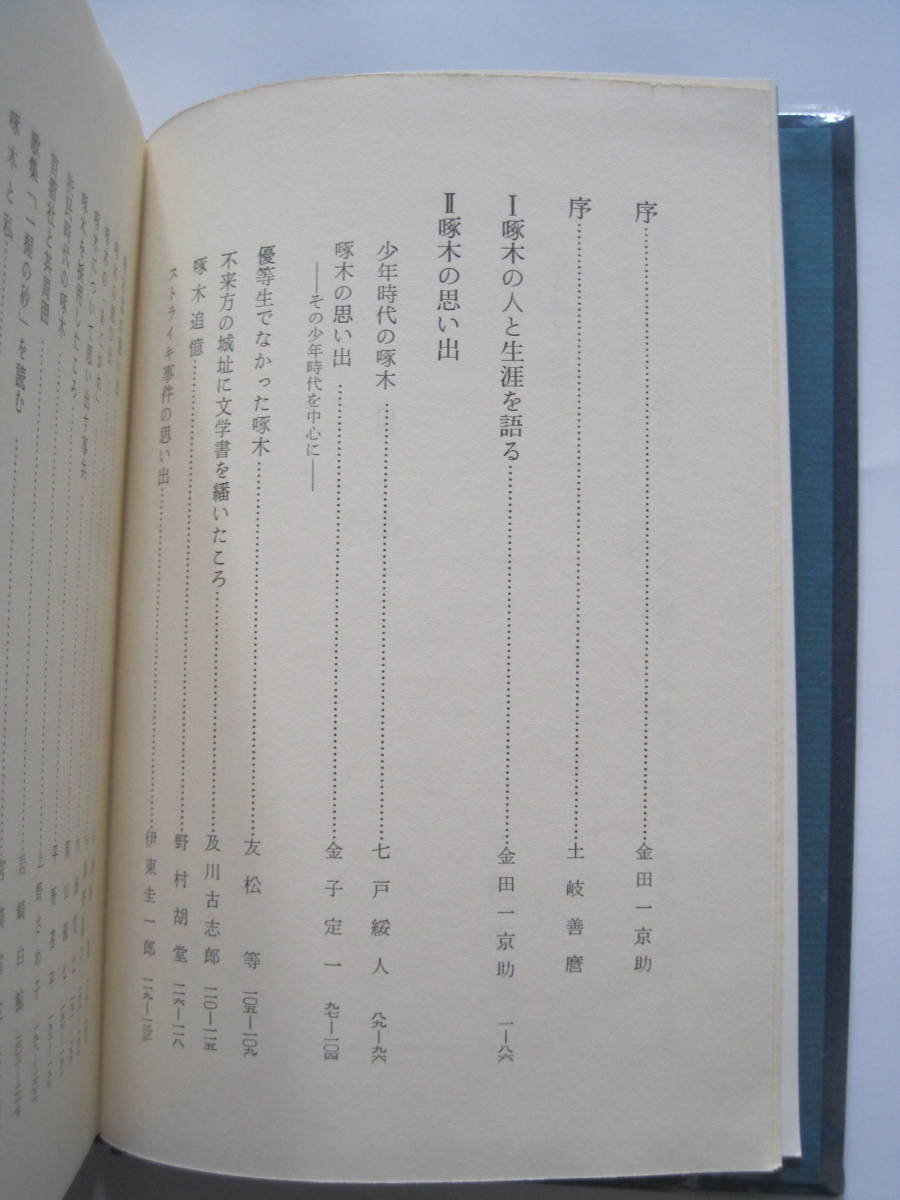 序……金田一京助
序……土岐善麿
Ⅰ 啄木の人と生涯を語る……金田一京助 一―八六
Ⅱ 啄木の思い出
少年時代の啄木……七戸綏人 八九―九六
啄木の思い出……金子定一 九七―一〇四
――その少年時代を中心に――
優等生でなかった啄木……友松等 一〇五―一〇九
不来方の城址に文学書を繙いたころ……及川古志郎 一一〇―一一五
啄木追憶……野村胡堂 一一六―一一八
ストライキ事件の思い出……伊東圭一郎
啄木について思い出す事共
啄木を採用したころ
渋民時代の啄木
苜蓿社と其周囲
歌集「一握の砂」を読む
啄木と私